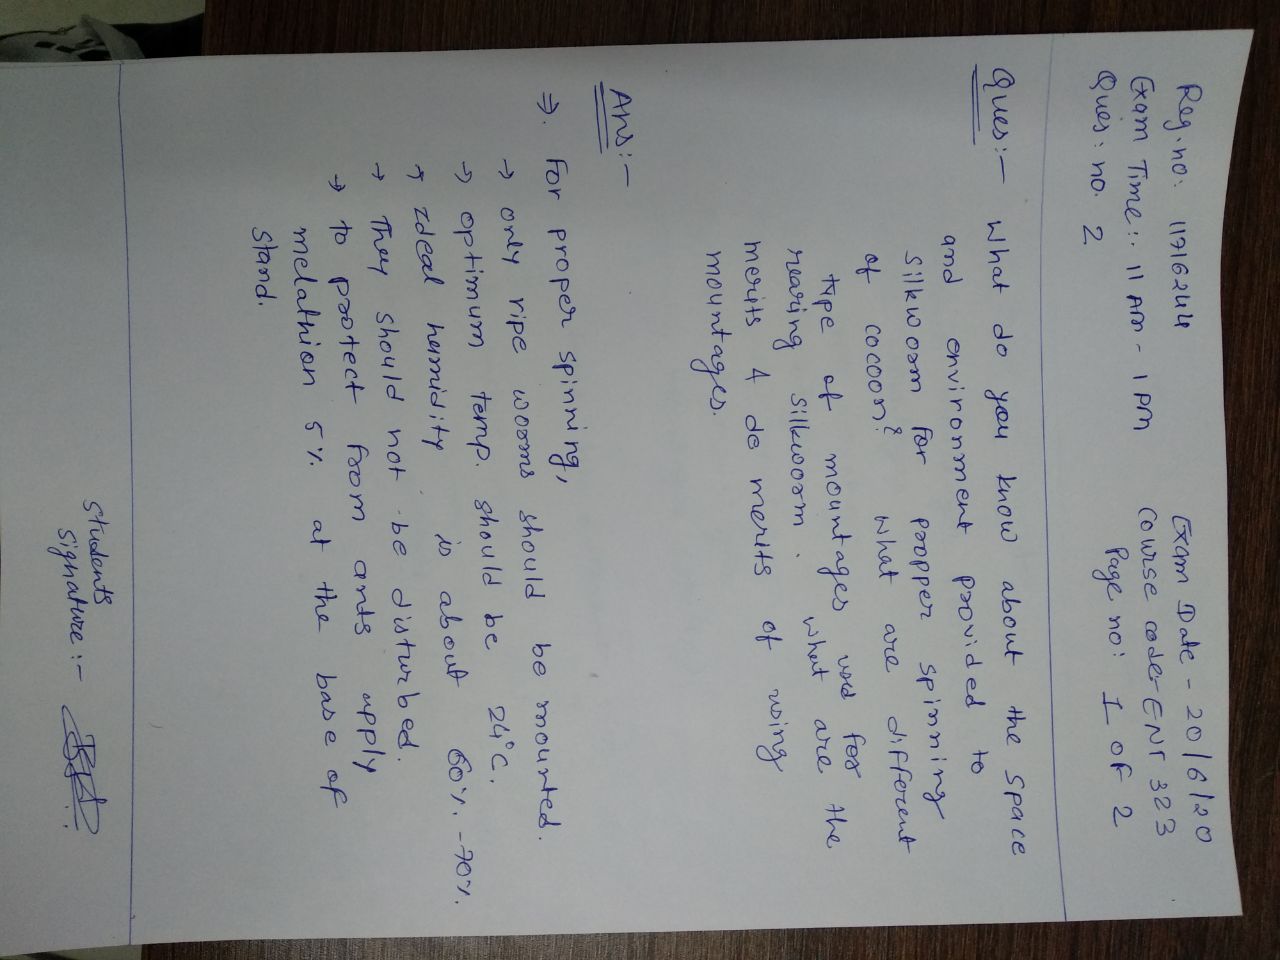 Reg.no: 11716244 Exam Date - 20/6/20
Exam Time:- 11 AM - 1 PM course code:- ENT 323
Ques: no. 2 Page no: 1 of 2
Ques:- What do you know about the space
and environment provided to
silkworm for propper spinning
of cocoon? what are different
type of mountages used for
rearing silkworm. what are the
merits & de merits of using
mountages.
Ans:-
⇒. For proper spinning,
→ only ripe worms should be mounted.
→ optimum temp. should be 24°C.
→ Ideal humidity is about 60% -70%.
→ They should not be disturbed.
→ to protect from ants apply
melathion 5% at the base of
stand.
students
signature:-